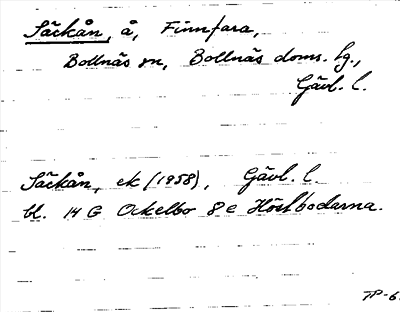 Säckån, å, Finnfara,
Bollnäs sn, Bollnäs doms. hg.,
Gävl. l.
Säckån, ek (1958), Gävl. l.
bl. 14 G Ockelbo 8 e Höstbodarna.
TP-6